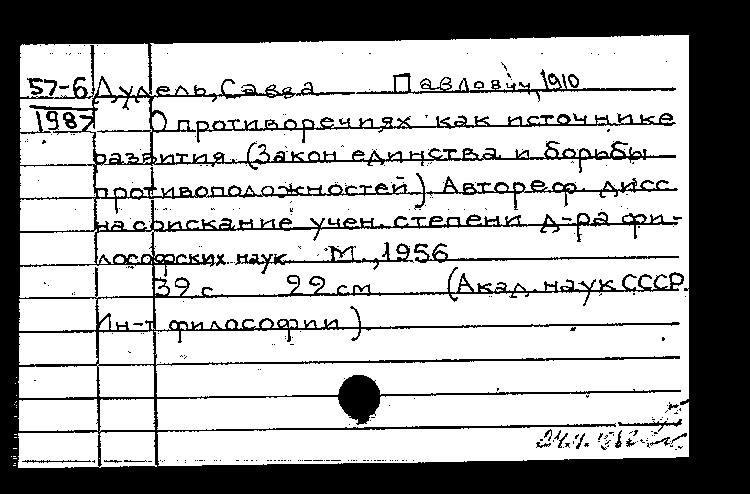 57-6 Дудель, Савва Павлович, 1910
1987 О противоречиях как источнике
развития. (Закон единства и борьбы
противоположностей). Автореф. дисс
на соискание учен. степени д-ра фи-
лософских наук М., 1956
39 с 22 см (Акад. наук СССР.
Ин-т философии).